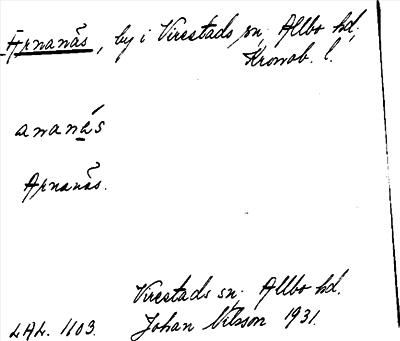 Arnanäs, by i Virestads sn, Allbo hd,
Kronob. l.
ananäs
Arnanäs.
Virestads sn, Allbo hd.
LAL. 1103. Johan Nilsson 1931.